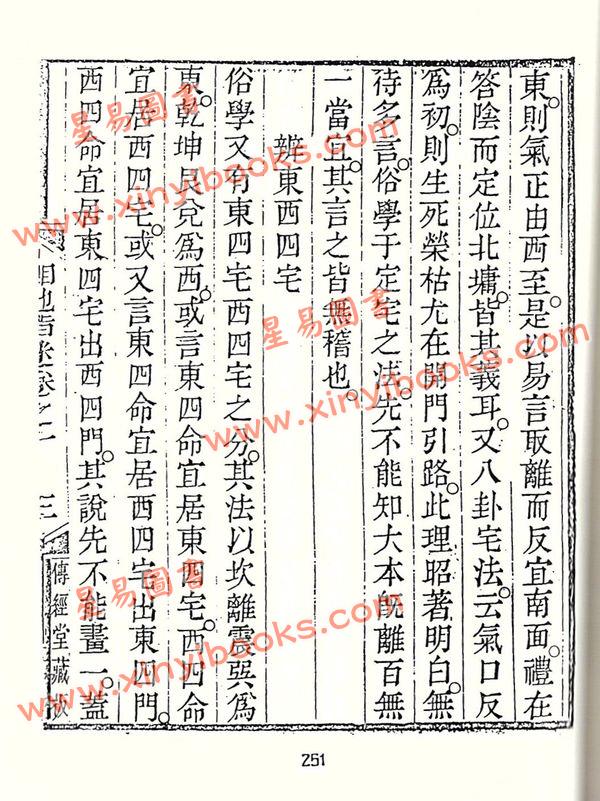 東則氣正由西至是以易言取離而反宜南面禮在
答陰而定位北墉皆其義耳又八卦宅法云氣口反
爲初則生死榮枯尤在開門引路此理昭著明白無
待多言俗學于定宅之法先不能知大本旣離百無
一當宜其言之皆無稽也
辨東西四宅
俗學又有東四宅西四宅之分其法以坎離震巽爲
東乾坤艮兌爲西或言東四命宜居東四宅西四命
宜居西四宅或又言東四命宜居西四宅出東四門
西四命宜居東四宅出西四門其說先不能畫一蓋
卷之二
三
傳經堂藏板
251
星易圖書
www.xinyibooks.com
星易圖書
www.xinyibooks.com
星易圖書
www.xinyibooks.com